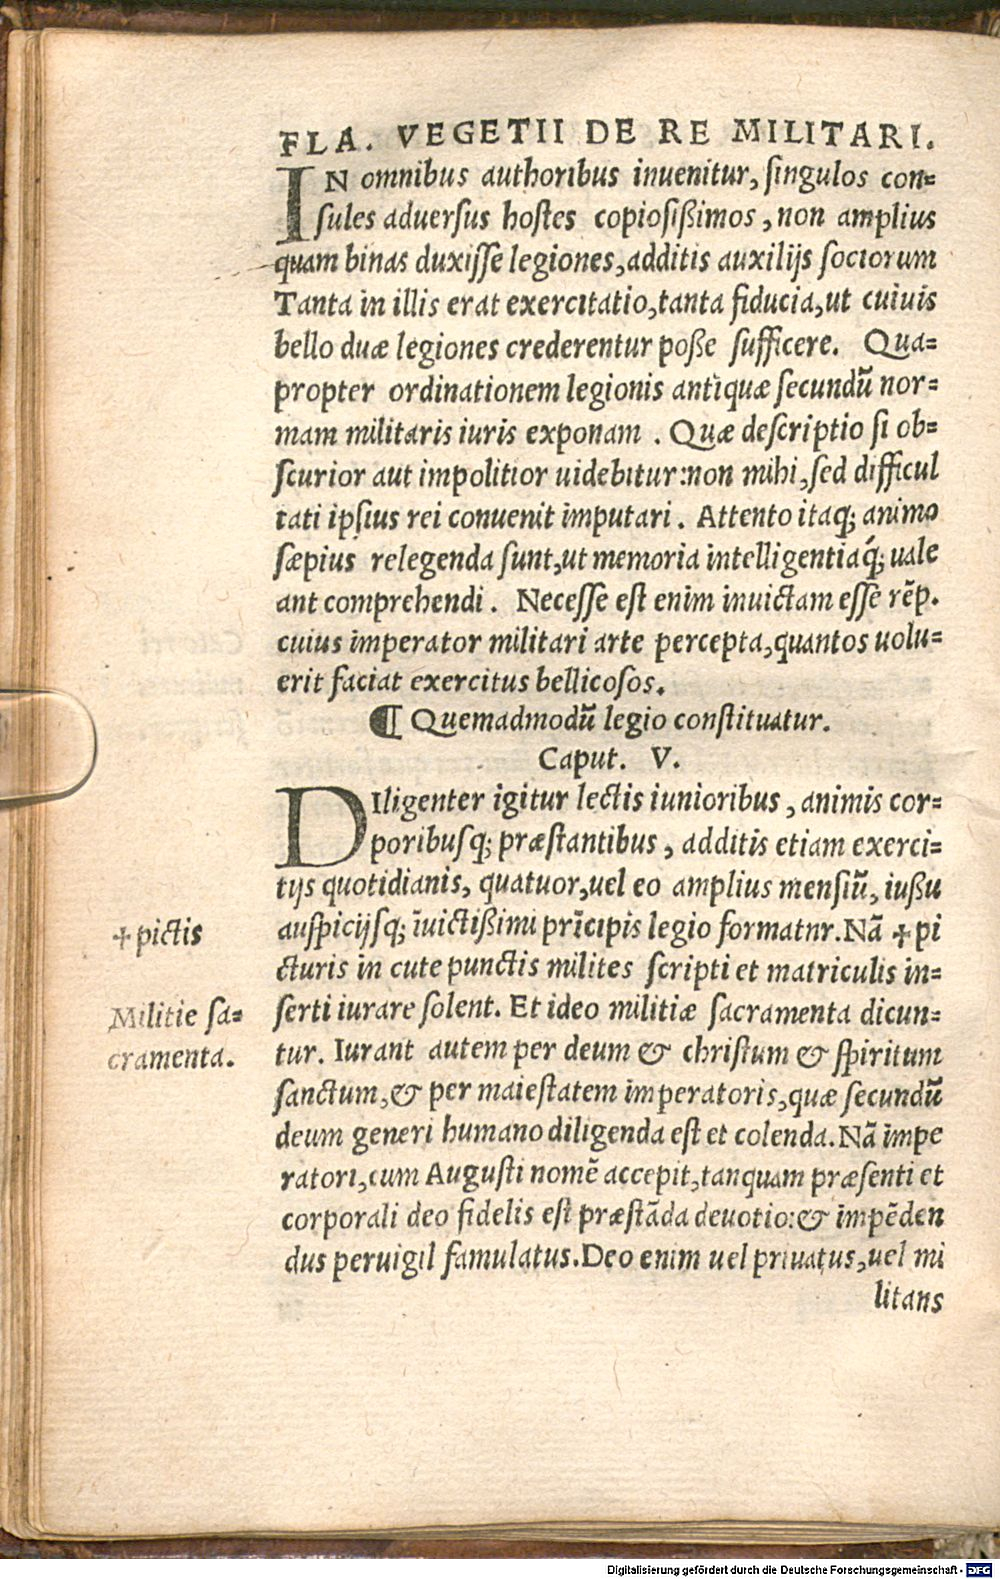 FLA. VEGETII DE RE MILITARI.
IN omnibus authoribus inuenitur, singulos con=
sules aduersus hostes copiosißimos, non amplius
quam binas duxisse legiones, additis auxilijs sociorum
Tanta in illis erat exercitatio, tanta fiducia, ut cuiuis
bello duæ legiones crederentur poße sufficere. Qua=
propter ordinationem legionis antiquæ secundũ nor=
mam militaris iuris exponam. Quæ descriptio si ob=
scurior aut impolitior uidebitur: non mihi, sed difficul
tati ipsius rei conuenit imputari. Attento itaq; animo
sæpius relegenda sunt, ut memoria intelligentiaq́; uale
ant comprehendi. Necesse est enim inuictam esse rẽp.
cuius imperator militari arte percepta, quantos uolu=
erit faciat exercitus bellicosos.
¶ Quemadmodũ legio constituatur.
Caput. V.
DIligenter igitur lectis iunioribus, animis cor=
poribusq; præstantibus, additis etiam exerci=
tijs quotidianis, quatuor, uel eo amplius mensiũ, iußu
auspicijsq; ĩuictißimi prĩcipis legio formatnr. Nã ✢ pi
✢ pictis
cturis in cute punctis milites scripti et matriculis in=
serti iurare solent. Et ideo militiæ sacramenta dicun=
Militie sa=
cramenta.
tur. Iurant autem per deum & christum & spiritum
sanctum, & per maiestatem imperatoris, quæ secundũ
deum generi humano diligenda est et colenda. Nã impe
ratori, cum Augusti nomẽ accepit, tanquam præsenti et
corporali deo fidelis est præstãda deuotio: & impẽden
dus peruigil famulatus. Deo enim uel priuatus, uel mi
litans
Digitalisierung gefördert durch die Deutsche Forschungsgemeinschaft - DFG